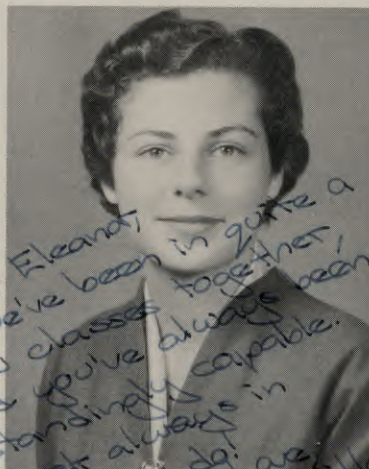 Eleanor,
we've been in quite a
classes together,
you've always been
standingly capable.
always in
do! are